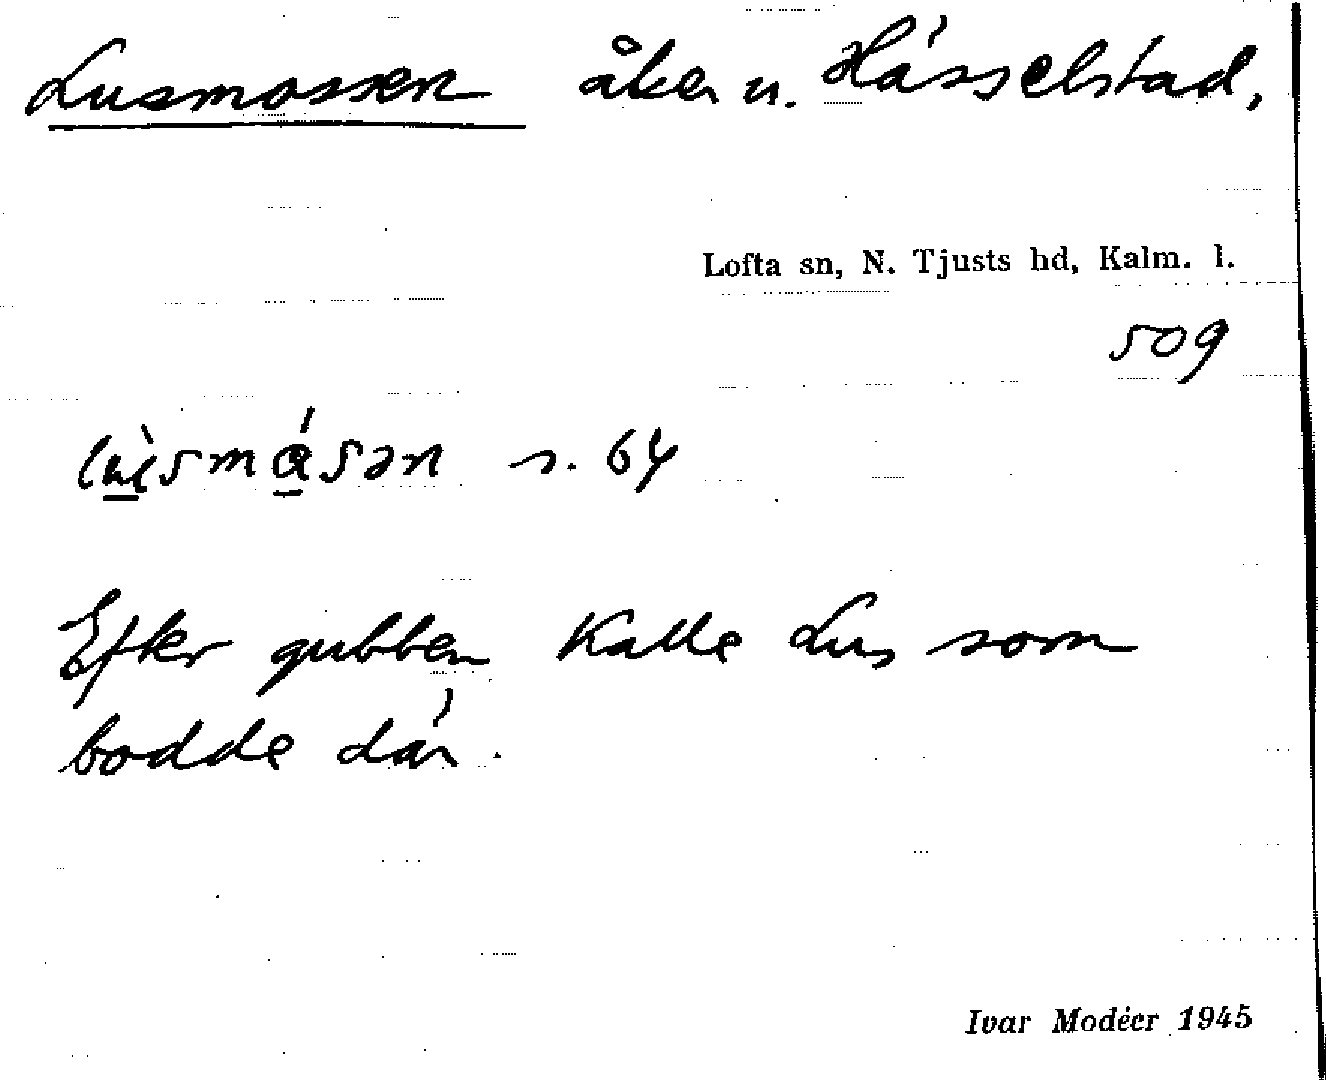 Lusmossen åker u. Hässelstad,
Lofta sn, N. Tjusts hd, Kalm. l.
509
s. 64
Efter gubben Kalle Lus som
bodde där.
Ivar Modéer 1945